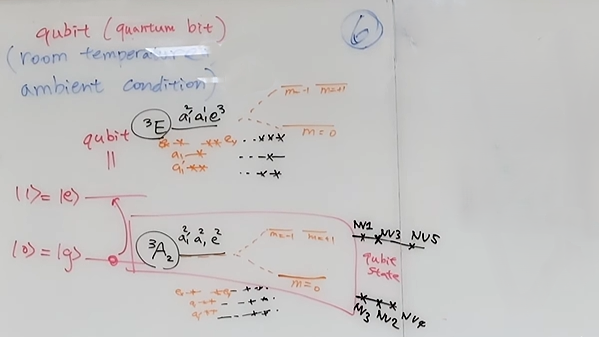 qubit (quantum bit)
6
(room temperature
ambient condition)
m=-1 m=+1
³E a₁² a₁¹ e³
m=0
qubit
||
a₁
a₁'
|1⟩ = |e⟩
|0⟩ = |g⟩
³A₂ a₁² a₁² e²
m=-1 m=+1
m=0
NV1 NV3 NV5
qubie
state
NV3 NV2 NV4